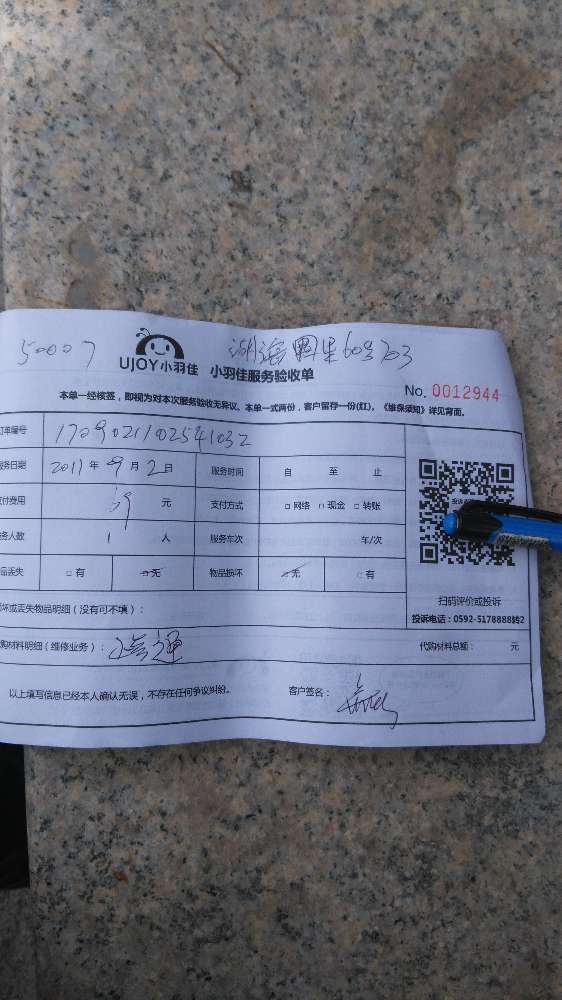 50007
湖滨
60号703
UJOY小羽佳 小羽佳服务验收单
No. 0012944
本单一经核签，即视为对本次服务验收无异议。本单一式两份，客户留存一份(红)，《维保须知》详见背面。
订单编号 1709021102541032
服务日期 2017年9月2日 服务时间 自 至 止
支付费用 元 支付方式 □网络 □现金 □转账
服务人数 1 人 服务车次 车/次
物品丢失 □有 □无 物品损坏 □无 □有
扫码评价或投诉
投诉电话：0592-5178888转2
损坏或丢失物品明细（没有可不填）：
代购材料明细（维修业务）： 疏通 代购材料总额： 元
以上填写信息已经本人确认无误，不存在任何争议纠纷。 客户签名：